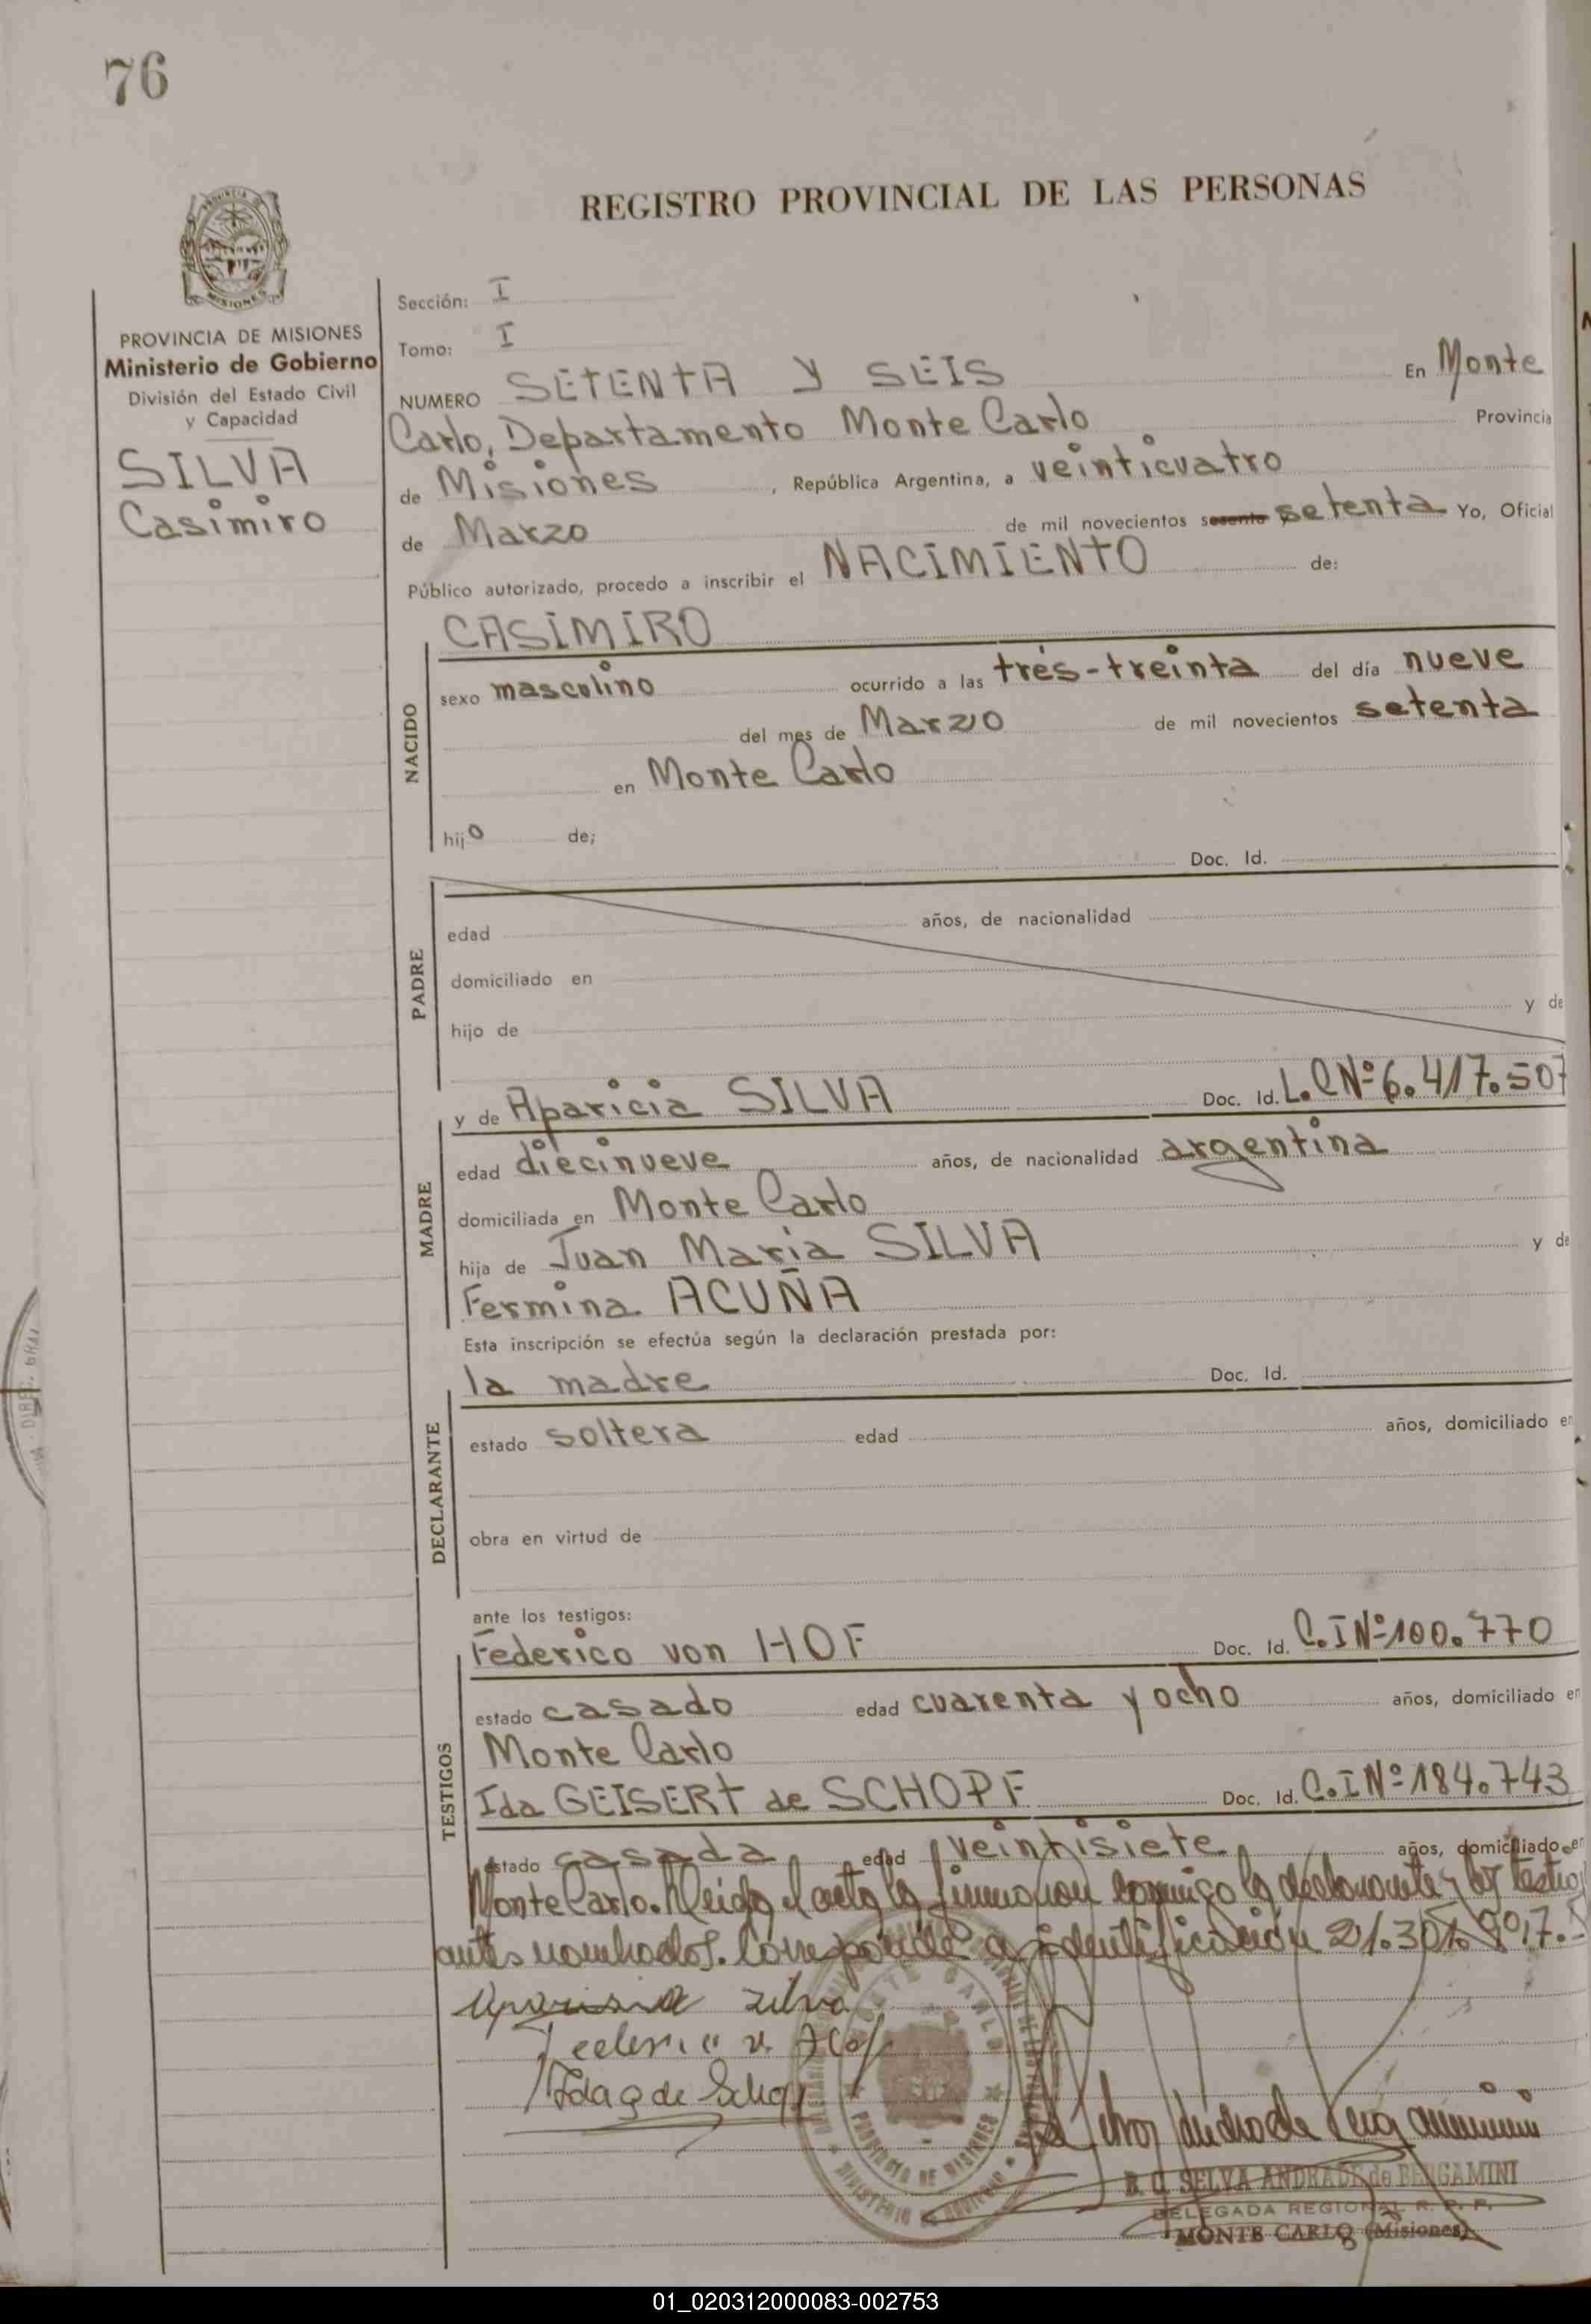 76
REGISTRO PROVINCIAL DE LAS PERSONAS
PROVINCIA DE MISIONES
Ministerio de Gobierno
División del Estado Civil
y Capacidad
SILVA
Casimiro
Sección: I
Tomo: I
NUMERO SETENTA Y SEIS En Monte
Carlo, Departamento Monte Carlo Provincia
de Misiones, República Argentina, a veinticuatro
de Marzo de mil novecientos sesenta setenta Yo, Oficial
Público autorizado, procedo a inscribir el NACIMIENTO de:
CASIMIRO
NACIDO
sexo masculino ocurrido a las tres-treinta del día nueve
del mes de Marzo de mil novecientos setenta
en Monte Carlo
hijo de;
Doc. Id.
PADRE
edad años, de nacionalidad
domiciliado en
hijo de y de
y de Aparicia SILVA Doc. Id. L.C Nº 6.417.507
MADRE
edad diecinueve años, de nacionalidad argentina
domiciliada en Monte Carlo
hija de Juan Maria SILVA y de
Fermina ACUÑA
Esta inscripción se efectúa según la declaración prestada por:
la madre Doc. Id.
DECLARANTE
estado soltera edad años, domiciliado en
obra en virtud de
ante los testigos:
Federico von HOF Doc. Id. C.I Nº 100.770
TESTIGOS
estado casado edad cuarenta y ocho años, domiciliado en
Monte Carlo
Ida GEISERT de SCHOPF Doc. Id. C.I Nº 184.743
estado casada edad veintisiete años, domiciliado en
Monte Carlo. Leida el acta la firma con conmigo la declarante y los testigos
antes nombrados. Corresponde a identificación 21.301.807.-
Aparisia Silva
Federico v. Hof
Ida G de Schopf
MONTE CARLO
PROVINCIA DE MISIONES
MINISTERIO DE GOBIERNO
B. O. SELVA ANDRADE de BERGAMINI
DELEGADA REGIONAL R. P. P.
MONTE CARLO (Misiones)
01_020312000083-002753